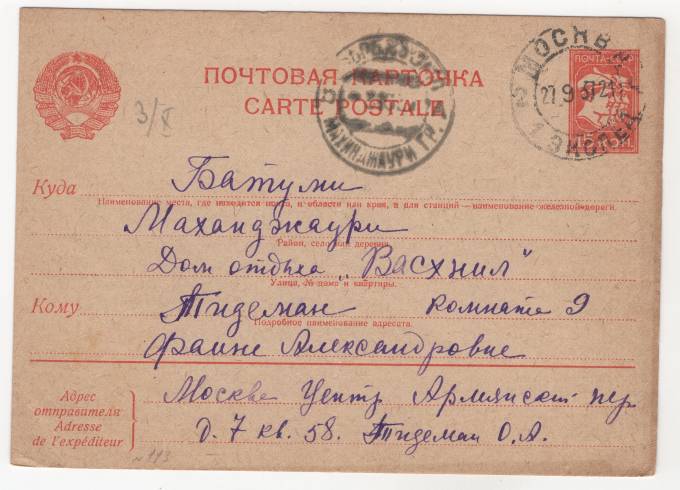 ПОЧТОВАЯ КАРТОЧКА
CARTE POSTALE
МОСКВА
27.9.37 21
1 ЭКСПЕД
ПОЧТА СССР
15 КОП
МАХИНДЖАУРИ ГР.
3/X
Куда Батуми
Наименование места, где находится почта, и области или края, а для станций — наименование железной дороги.
Маханджаури
Район, село или деревня.
Дом отдыха „Васхнил"
Улица, № дома и квартиры.
Кому Тидеман комната 9
Подробное наименование адресата.
Фаине Александровне
Адрес отправителя Москва Центр Армянский пер
Adresse de l'expéditeur Д. 7 кв. 58. Тидеман О.А.
№ 113